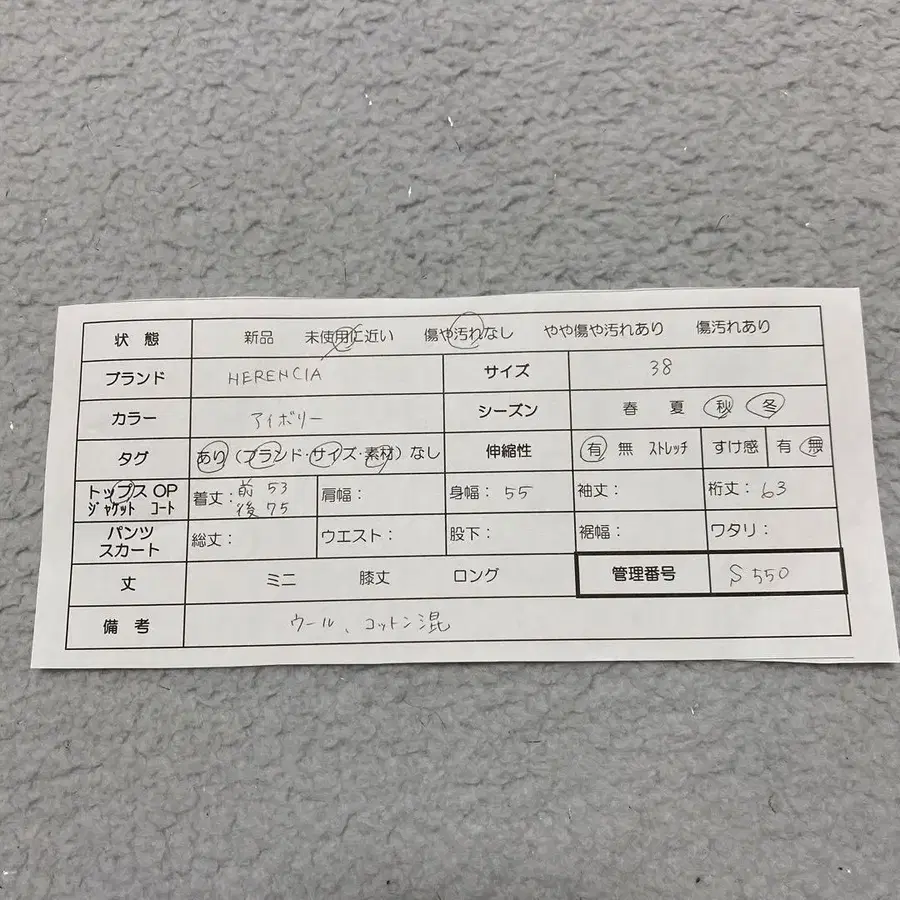 状態 新品 未使用に近い 傷や汚れなし やや傷や汚れあり 傷汚れあり
ブランド HERENCIA サイズ 38
カラー アイボリー シーズン 春 夏 秋 冬
タグ あり(ブランド・サイズ・素材)なし 伸縮性 有 無 ストレッチ すけ感 有 無
トップス OP
ジャケット コート
着丈: 前 53
後 75
肩幅: 身幅: 55 袖丈: 裄丈: 63
パンツ
スカート
総丈: ウエスト: 股下: 裾幅: ワタリ:
丈 ミニ 膝丈 ロング 管理番号 S550
備考 ウール、コットン混